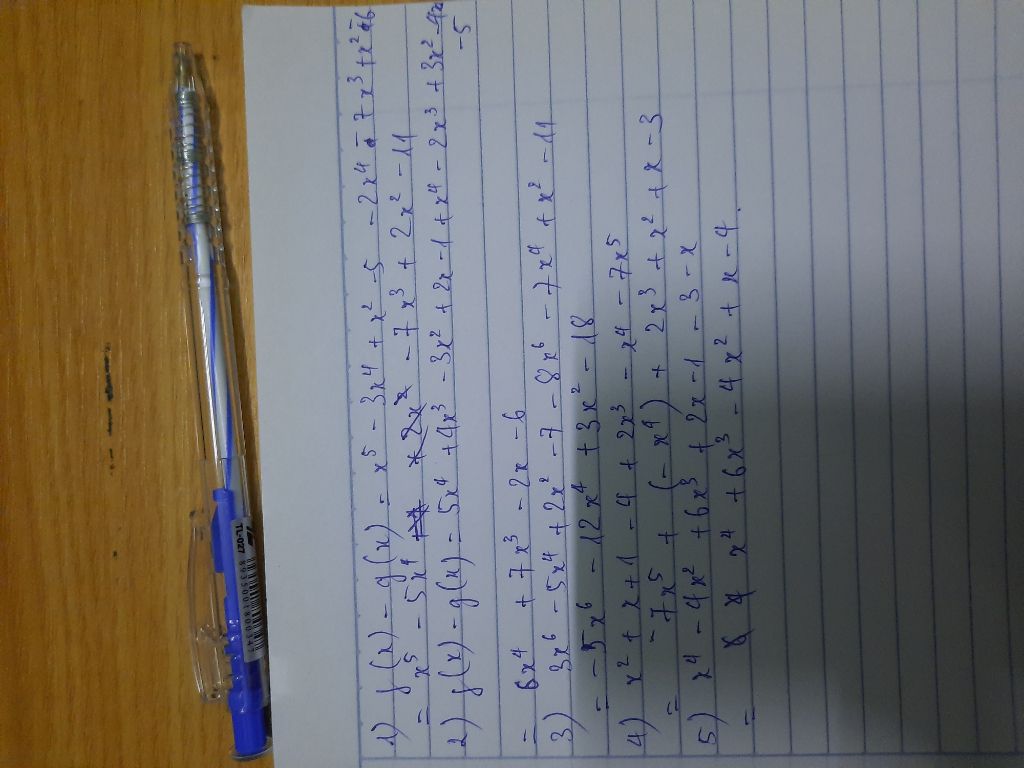 1) f(x) - g(x) = x⁵ - 3x⁴ + x² - 5 - 2x⁴ - 7x³ + x² - 6
= x⁵ - 5x⁴ - 7x³ + 2x² - 11
2) f(x) - g(x) = 5x⁴ + 4x³ - 3x² + 2x - 1 + x⁴ - 2x³ + 3x² - 4x
- 5
= 6x⁴ + 7x³ - 2x - 6
3) 3x⁶ - 5x⁴ + 2x² - 7 - 8x⁶ - 7x⁴ + x² - 11
= - 5x⁶ - 12x⁴ + 3x² - 18
4) x² + x + 1 - 4 + 2x³ - x⁴ - 7x⁵
= - 7x⁵ + (- x⁴) + 2x³ + x² + x - 3
5) x⁴ - 4x² + 6x³ + 2x - 1 - 3 - x
= x⁴ + 6x³ - 4x² + x - 4.
TL-027